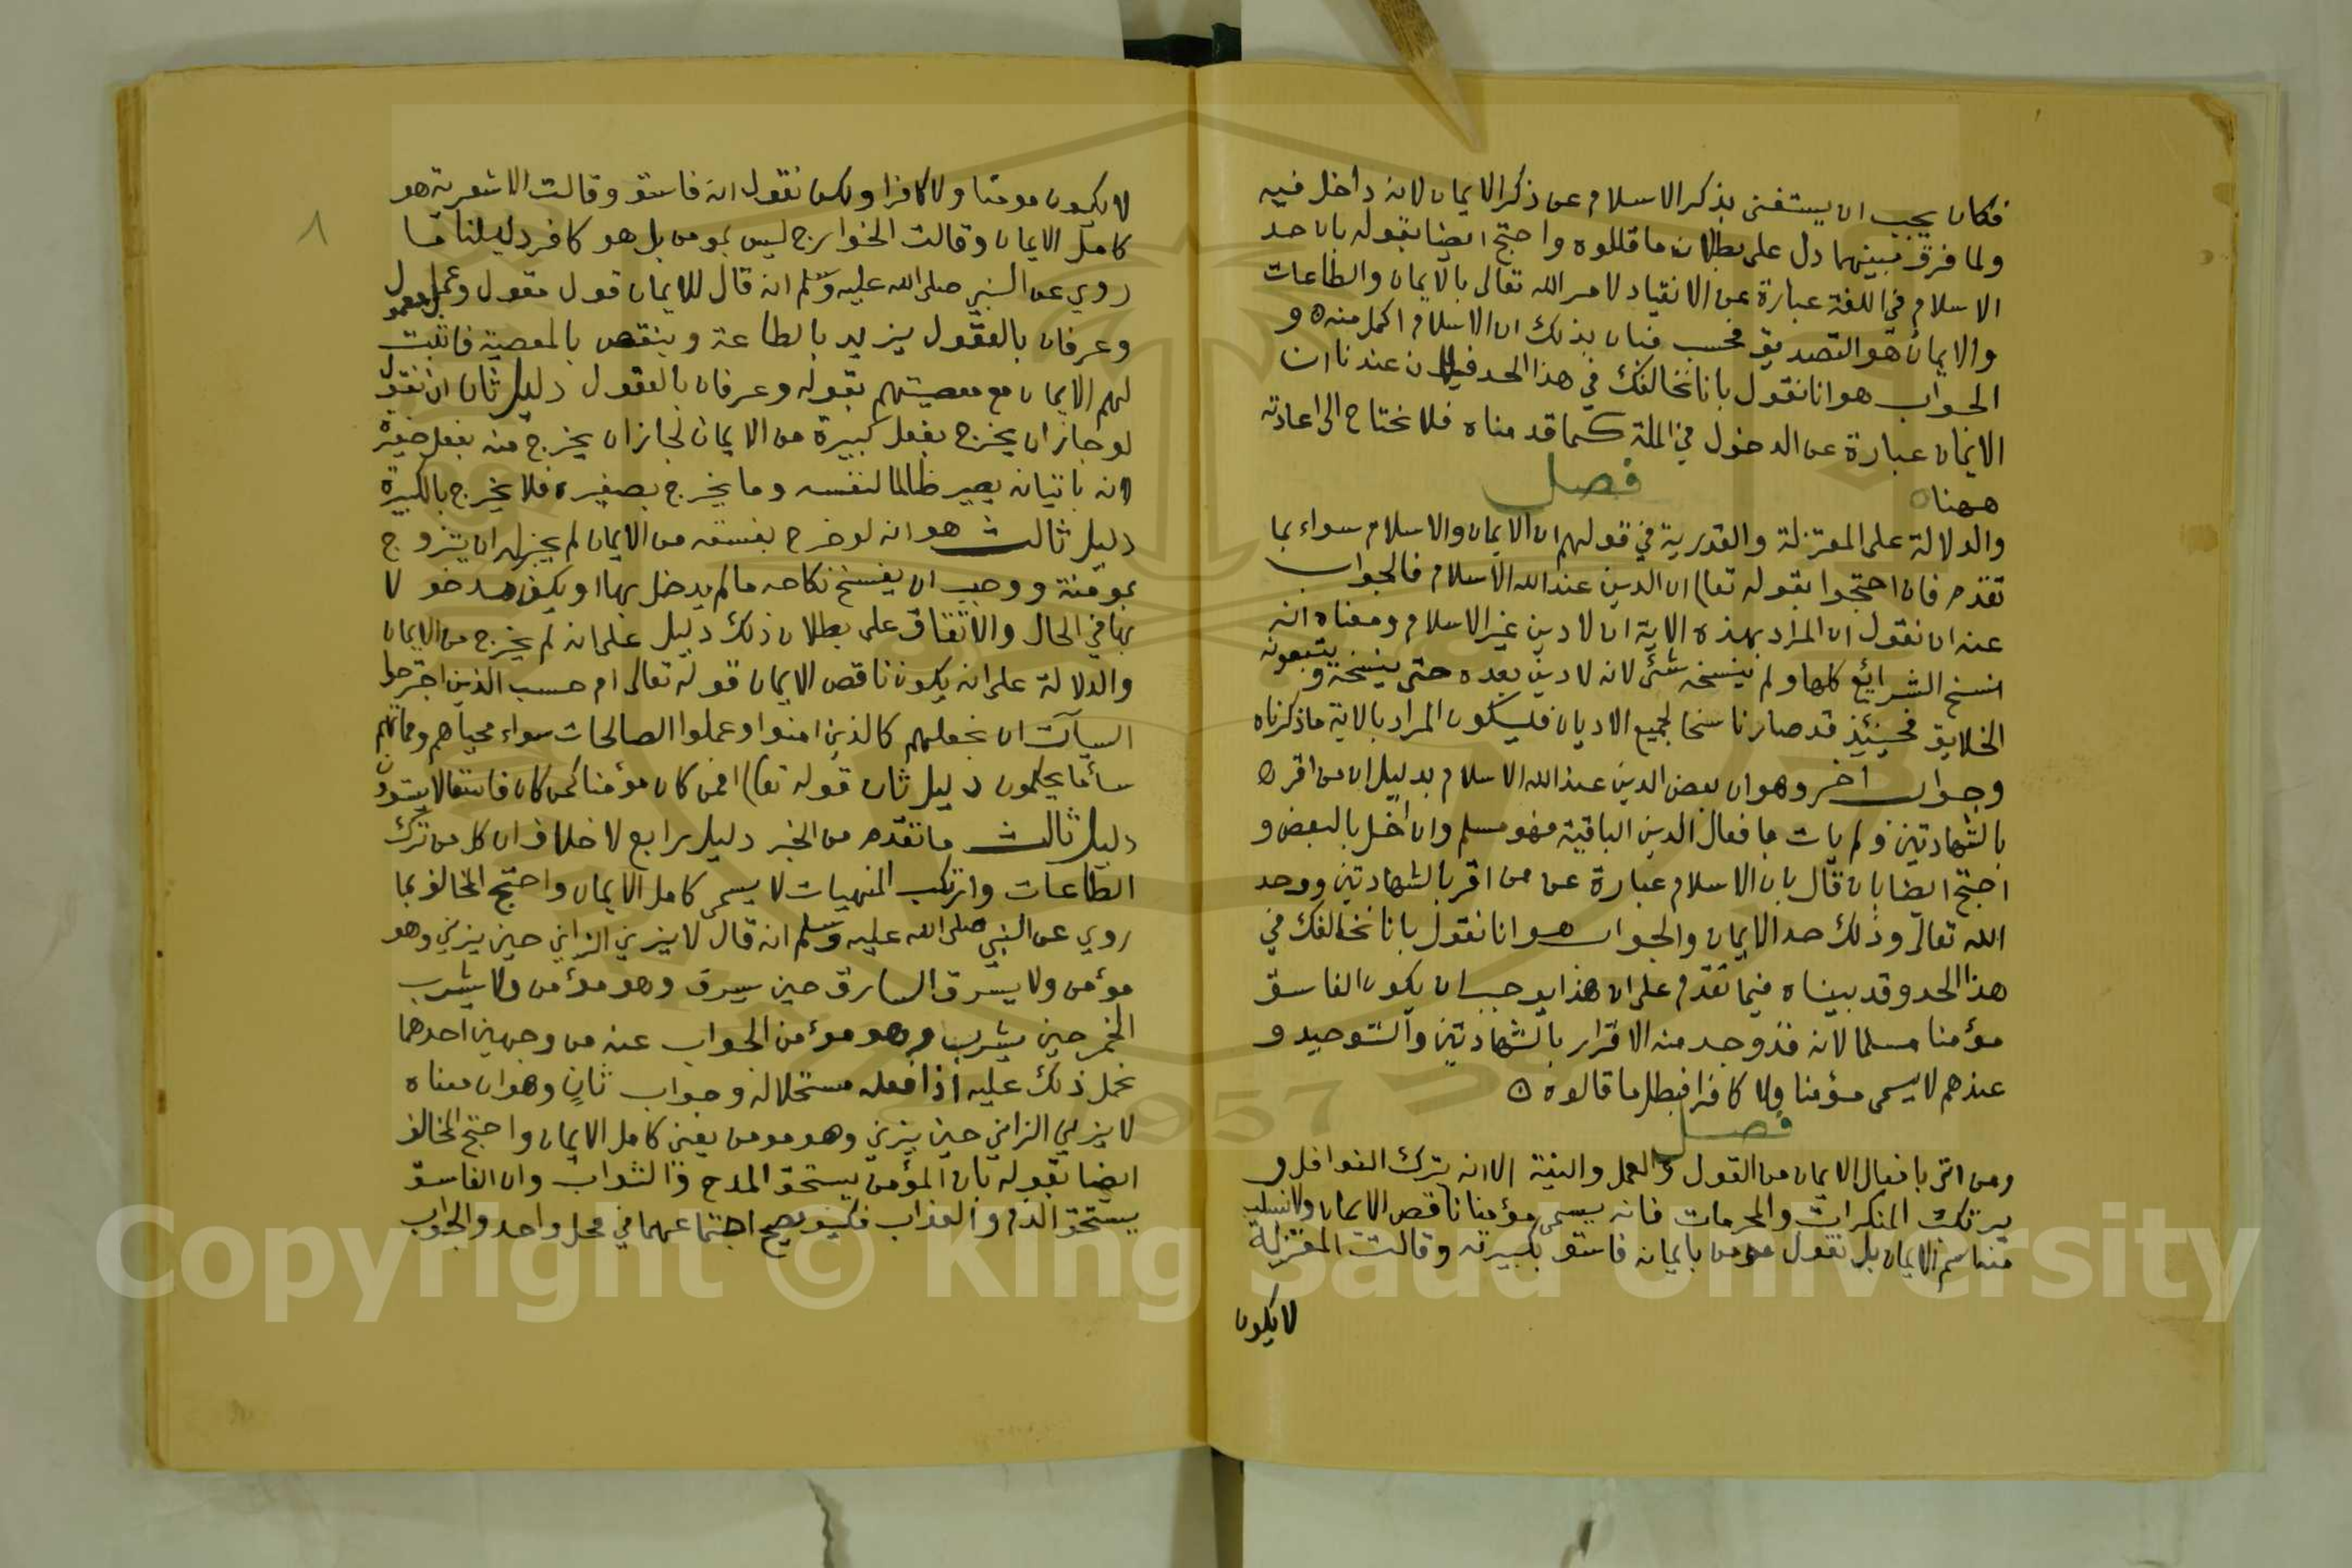 فكان يجب ان يستغنى بذكر الاسلام عن ذكر الايمان لانه داخل فيه
ولما فرق بينهما دل على بطلان ما قالوه واحتج ايضا بقوله بان حد
الاسلام في اللغة عبارة عن الانقياد لامر الله تعالى بالايمان والطاعات
والايمان هو التصديق فحسب فبان بذلك ان الاسلام اكمل منه و
الجواب هو انا نقول بانا نخالفك في هذا الحد فان عندنا ان
الايمان عبارة عن الدخول في الملة كما قدمناه فلا نحتاج الى اعادته
ههنا
فصل
والدلالة على المعتزلة والقدرية في قولهم ان الايمان والاسلام سواء بما
تقدم فان احتجوا بقوله تعا ان الدين عند الله الاسلام فالجواب
عنه ان نقول ان المراد بهذه الاية ان لا دين غير الاسلام ومعناه انه
انسخ الشرايع كلها ولم ينسخه شئ لانه لا دين بعده حتى ينسخه و يتبعونه
الخلايق فحينئذ قد صار ناسخا لجميع الاديان فليكون المراد بالاية ما ذكرناه
وجواب اخر وهو ان بعض الدين عند الله الاسلام بدليل ان من اقر
بالشهادتين ولم يات بافعال الدين الباقية فهو مسلم وان اخل بالبعض و
احتج ايضا بان قال بان الاسلام عبارة عن من اقر بالشهادتين ووحد
الله تعالى وذلك حد الايمان والجواب هو انا نقول بانا نخالفك في
هذا الحد وقد بيناه فيما تقدم على ان هذا يوجب ان يكون الفاسق
مؤمنا مسلما لانه قد وجد منه الاقرار بالشهادتين والتوحيد و
عندهم لا يسمى مؤمنا ولا كافرا فبطل ما قالوه ن
فصل
ومن اتى بافعال الايمان من القول والعمل والنية الا انه يترك النوافل و
يرتكب المنكرات والمحرمات فانه يسمى مؤمنا ناقص الايمان ولا نسلب
منه اسم الايمان بل نقول مومن بايمانه فاسق بكبيرته وقالت المعتزلة
لا يكون
٨
لا يكون مومنا ولا كافرا ولكن نقول انه فاسق وقالت الاشعرية هو
كامل الايمان وقالت الخوارج ليس بمومن بل هو كافر دليلنا ما
روي عن النبي صلى الله عليه وسلم انه قال للايمان قول مقول وعمل معمول
وعرفان بالعقول يزيد بالطاعة وينقص بالمعصية فاثبت
لهم الايمان مع معصيتهم بقوله وعرفان بالعقول دليل ثان ان نقول
لو جاز ان يخرج بفعل كبيرة من الايمان لجاز ان يخرج منه بفعل صغيرة
لانه باتيانه يصير ظالما لنفسه وما يخرج بصغيره فلا يخرج بالكبيرة
دليل ثالث هو انه لو خرج بفسقه من الايمان لم يجز له ان يتزوج
بمومنة ووجب ان يفسخ نكاحه ما لم يدخل بها او يكون مدخولا
بها في الحال والاتفاق على بطلان ذلك دليل على انه لم يخرج من الايمان
والدلالة على انه يكون ناقص الايمان قوله تعالى ام حسب الذين اجترحوا
السيآت ان نجعلهم كالذين امنوا وعملوا الصالحات سواء محياهم ومماتهم
ساء ما يحكمون دليل ثان قوله تعا افمن كان مؤمنا كمن كان فاسقا لا يستوون
دليل ثالث ما تقدم من الخبر دليل رابع لا خلاف ان كل من ترك
الطاعات وارتكب المنهيات لا يسمى كامل الايمان واحتج المخالف بما
روي عن النبي صلى الله عليه وسلم انه قال لا يزني الزاني حين يزني وهو
مؤمن ولا يسرق السارق حين يسرق وهو مؤمن ولا يشرب
الخمر حين يشرب وهو مؤمن الجواب عنه من وجهين احدهما
نحمل ذلك عليه اذا فعله مستحلا له وجواب ثان وهو ان معناه
لا يزني الزاني حين يزني وهو مومن يعني كامل الايمان واحتج المخالف
ايضا بقوله بان المؤمن يستحق المدح والثواب وان الفاسق
يستحق الذم والعذاب فكيف يصح اجتماعهما في محل واحد والجواب
Copyright © King Saud University
1957